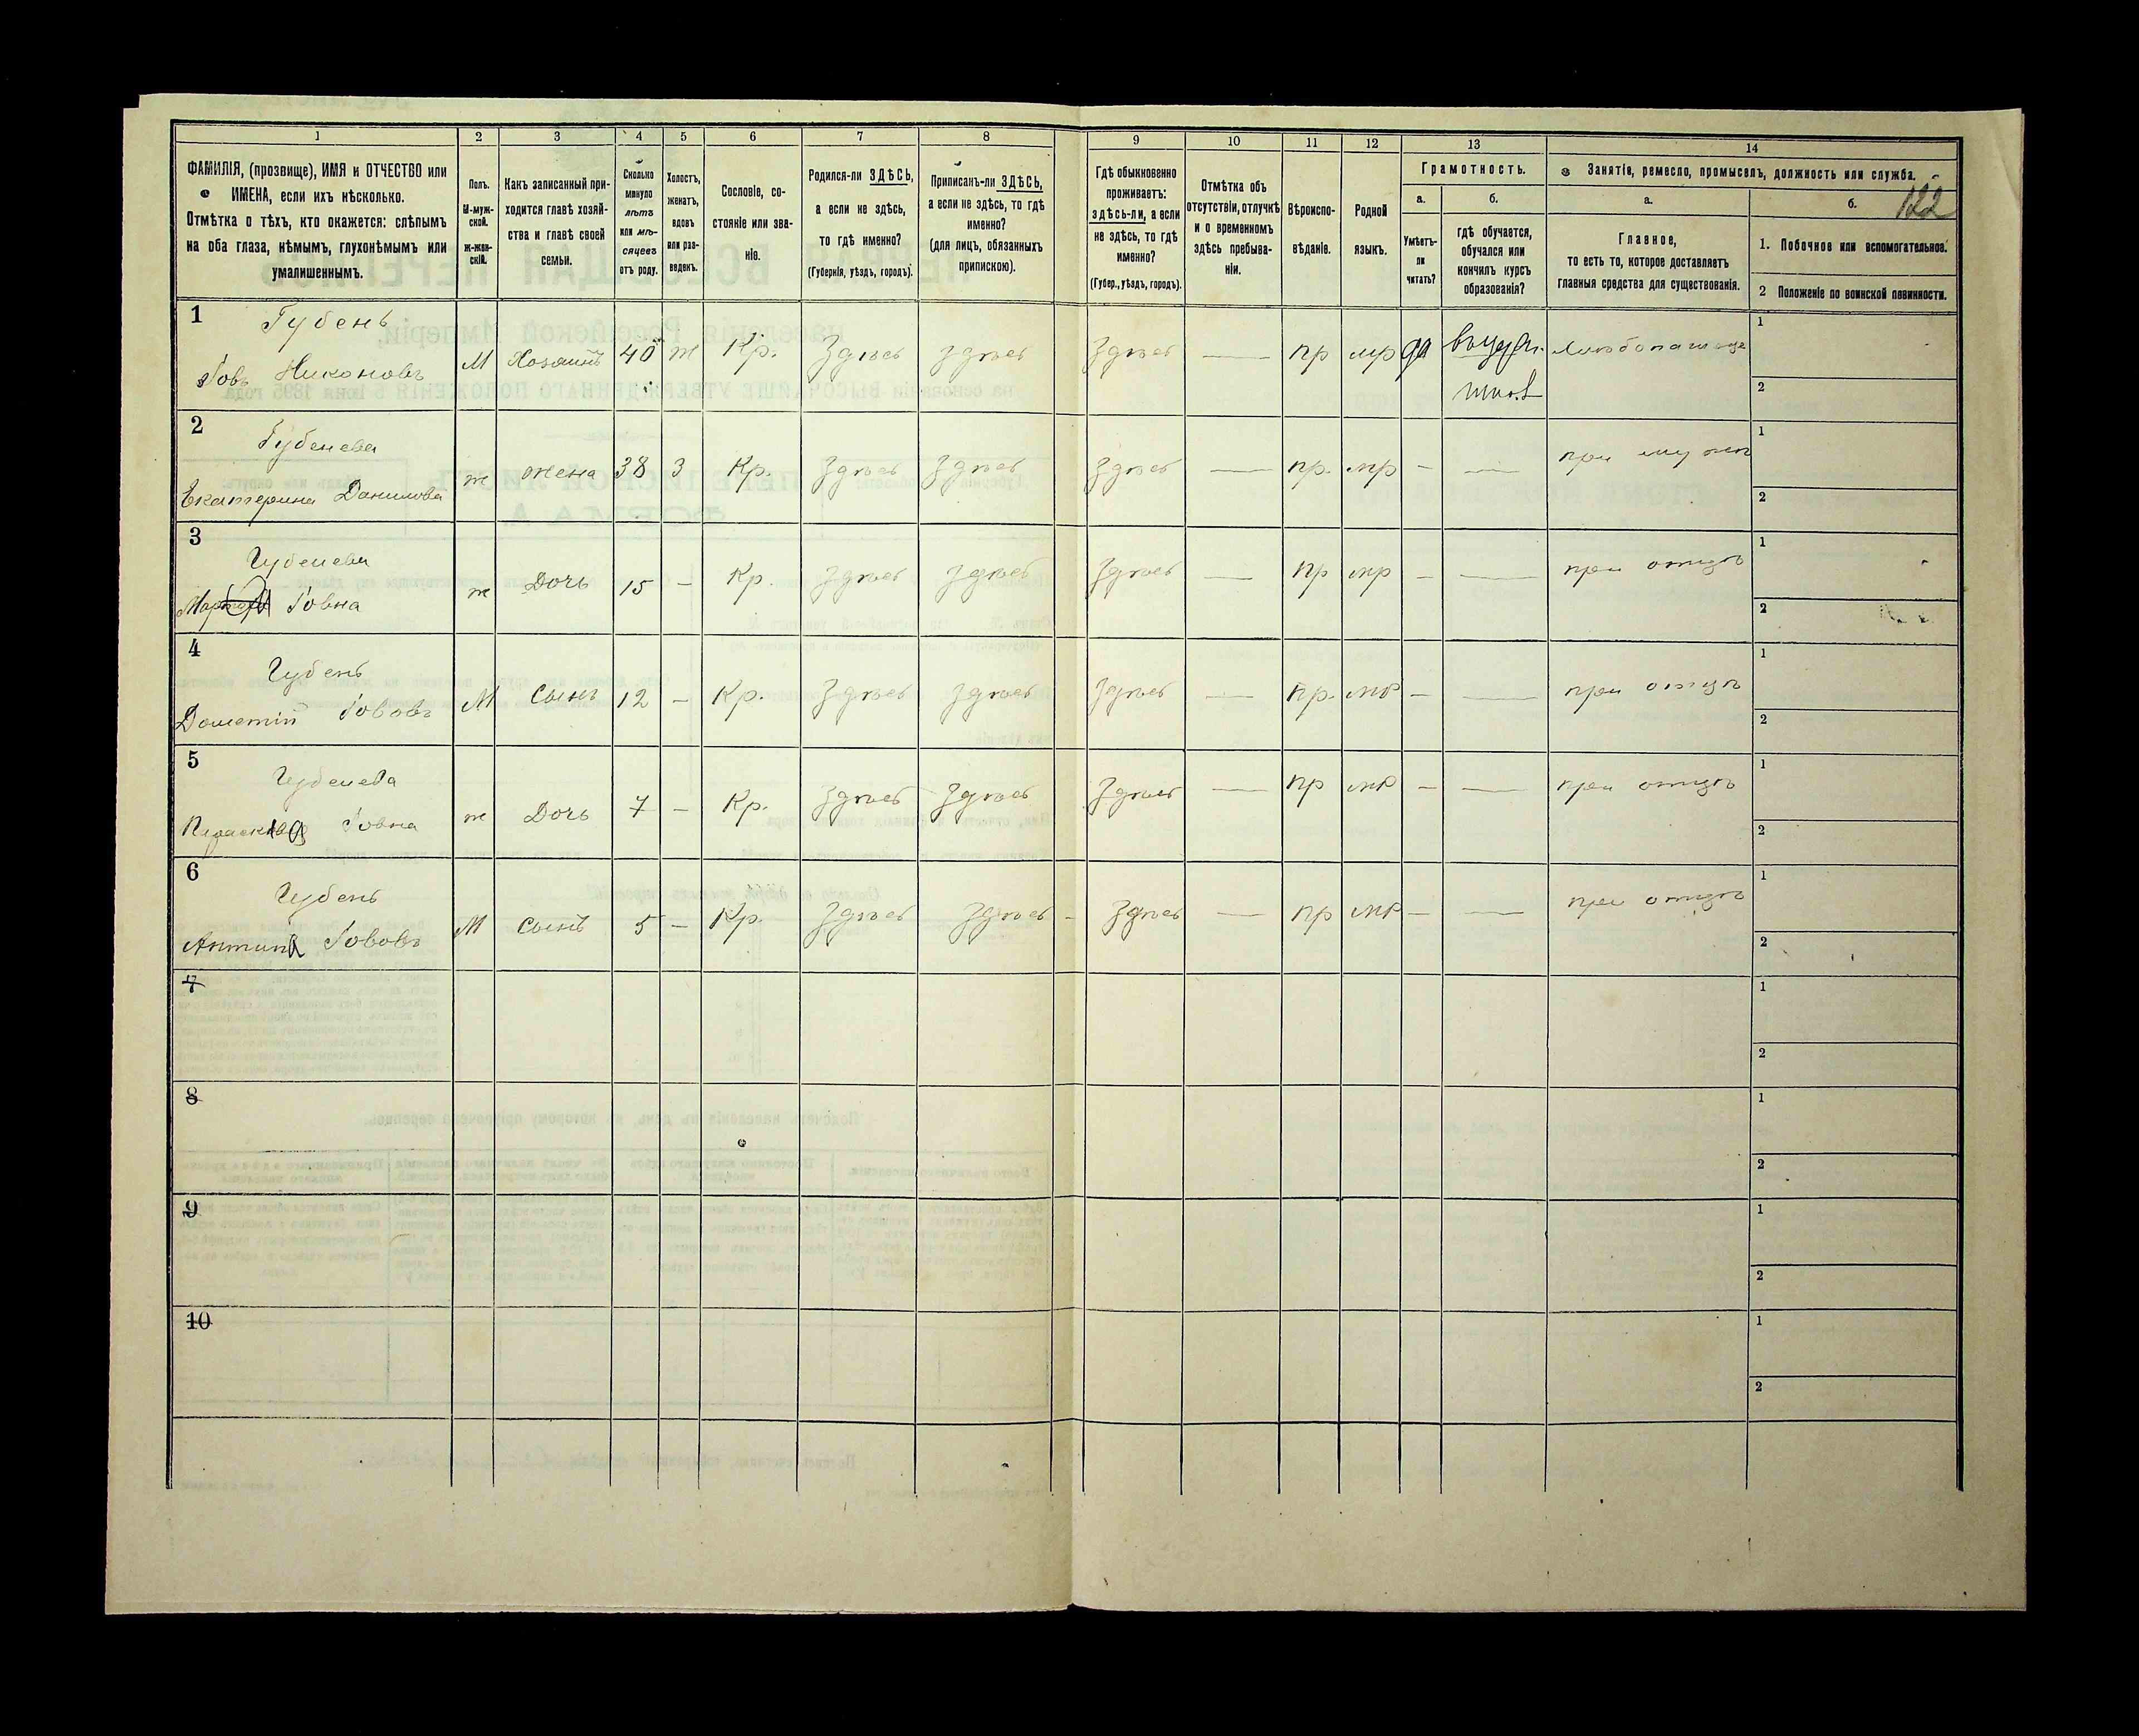 1 2 3 4 5 6 7 8 9 10 11 12 13 14
ФАМИЛІЯ, (прозвище), ИМЯ и ОТЧЕСТВО или
ИМЕНА, если ихъ нѣсколько.
Отмѣтка о тѣхъ, кто окажется: слѣпымъ
на оба глаза, нѣмымъ, глухонѣмымъ или
умалишеннымъ.
Полъ.
М-муж-
ской.
ж-жен-
скій.
Какъ записанный при-
ходится главѣ хозяй-
ства и главѣ своей
семьи.
Сколько
минуло
лѣтъ
или мѣ-
сяцевъ
отъ роду.
Холостъ,
женатъ,
вдовъ
или раз-
веденъ.
Сословіе, со-
стояніе или зва-
ніе.
Родился-ли ЗДѢСЬ,
а если не здѣсь,
то гдѣ именно?
(Губернія, уѣздъ, городъ).
Приписанъ-ли ЗДѢСЬ,
а если не здѣсь, то гдѣ
именно?
(для лицъ, обязанныхъ
припискою).
Гдѣ обыкновенно
проживаетъ:
здѣсь-ли, а если
не здѣсь, то гдѣ
именно?
(Губер., уѣздъ, городъ).
Отмѣтка объ
отсутствіи, отлучкѣ
и о временномъ
здѣсь пребыва-
ніи.
Вѣроиспо-
вѣданіе.
Родной
языкъ.
Грамотность.
а.
Умѣетъ-
ли
читать?
б.
гдѣ обучается,
обучался или
кончилъ курсъ
образованія?
Занятіе, ремесло, промыселъ, должность или служба.
а.
Главное,
то есть то, которое доставляетъ
главныя средства для существованія.
б.
122
1. Побочное или вспомогательное.
2 Положеніе по воинской повинности.
1 Губень
Іовъ Никоновъ М Хозяинъ 40 ж Кр. Здѣсь Здѣсь Здѣсь — пр мр да
1
2
2 Губенева
Екатерина Данилова ж жена 38 З Кр. Здѣсь Здѣсь Здѣсь — пр. мр — — при мужѣ
1
2
3 Губенева
Іовна ж Дочь 15 — Кр. Здѣсь Здѣсь Здѣсь — пр мр — — при отцѣ
1
2
4 Губень
Дометій Іововъ М Сынъ 12 — Кр. Здѣсь Здѣсь Здѣсь — пр. мр — — при отцѣ
1
2
5 Губенева
Іовна ж Дочь 7 — Кр. Здѣсь Здѣсь Здѣсь — пр мр — — при отцѣ
1
2
6 Губень
Іововъ М Сынъ 5 — Кр. Здѣсь Здѣсь — Здѣсь — пр мр — — при отцѣ
1
2
7
1
2
8
1
2
9
1
2
10
1
2